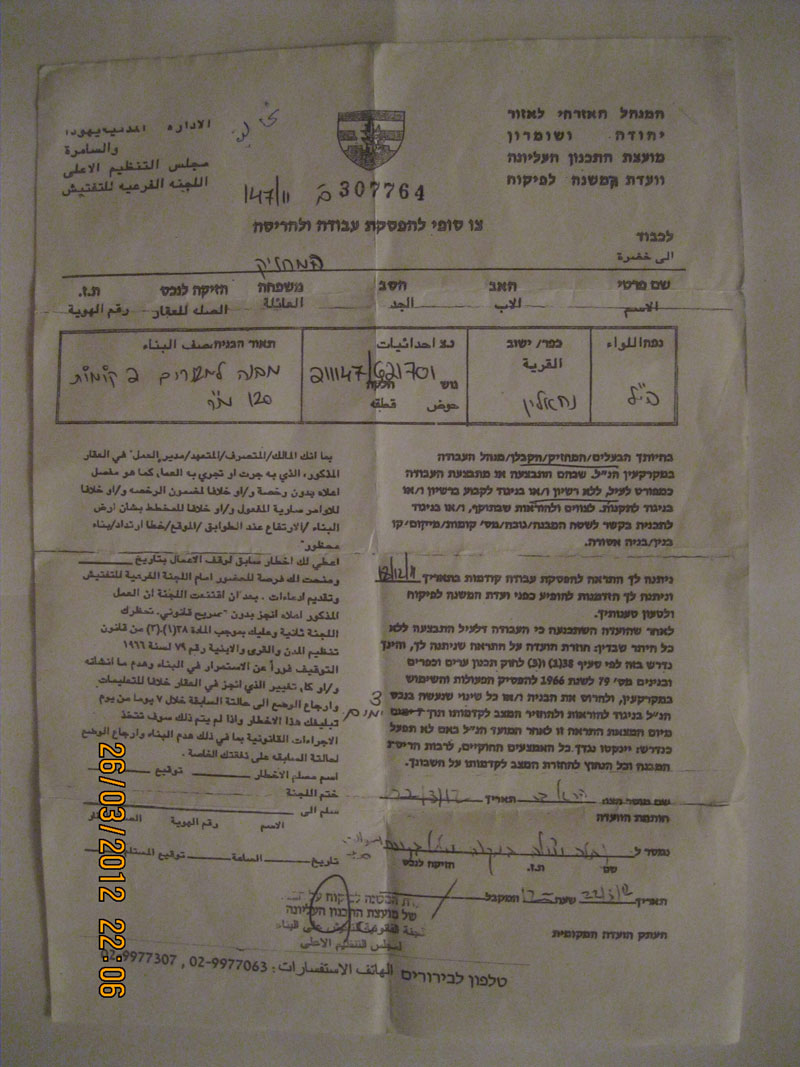 המנהל האזרחי לאזור
יהודה ושומרון
מועצת התכנון העליונה
וועדת המשנה לפיקוח
الاداره المدنيه يهودا
والسامرة
مجلس التنظيم الاعلى
اللجنه الفرعيه للتفتيش
307764
147/11
צו סופי להפסקת עבודה ולהריסה
לכבוד
الى حضرة
המחזיק
שם פרטי האב הסב משפחה הזיקה לנכס ת.ז.
الاسم الاب الجد العائلة الصله للعقار رقم الهوية
נפה اللواء
בי"ל
כפר/ישוב
القرية
נחאלין
נצ احداثيات
211147/621701
גוש חלקה
حوض قطعه
תאור הבניה/صف البناء
מבנה למגורים 2 קומות
120 מ"ר
בהיותך הבעלים/המחזיק/הקבלן/מנהל העבודה
במקרקעין הנ"ל, שבהם התבצעה או מתבצעת העבודה
כמפורט לעיל, ללא רשיון ו/או בניגוד לקבוע ברשיון ו/או
בניגוד לתקנות, לצווים ולהוראות שבתוקף, ו/או בניגוד
לתכנית בקשר לשטח המבנה/גובה/מס' קומות/מיקום/קו
בנין/בניה אסורה.
ניתנה לך התראה להפסקת עבודה קודמות בתאריך 18/12/11
וניתנה לך הזדמנות להופיע בפני ועדת המשנה לפיקוח
ולטעון טענותיך.
לאחר שהועדה השתכנעה כי העבודה דלעיל התבצעה ללא
כל היתר שבדין: חוזרת הועדה על התראה שניתנה לך, והינך
נדרש בזה לפי סעיף 38(1) ו(3) לחוק תכנון ערים וכפרים
ובנינים מס' 79 לשנת 1966 להפסיק הפעולות והשימוש
במקרקעין, ולהרוס את הבניה ו/או כל שינוי שנעשה בנכס
הנ"ל בניגוד להוראות ולהחזיר המצב לקדמותו תוך 7 ימים
3 ימים
מיום המצאת התראה זו לאחר המועד הנ"ל באם לא תפעל
כנדרש: יינקטו נגדך כל האמצעים החוקיים, לרבות הריסת
המבנה וכל הנחוץ להחזרת המצב לקדמותו על חשבונך.
بما انك المالك/المتصرف/المتعهد/مدير العمل" في العقار
المذكور، الذي به جرت او تجري به العمل، كما هو مفصل
اعلاه بدون رخصة و/او خلافا لمضمون الرخصه و/او خلافا
للاوامر سارية المفعول و/او خلافا للمخطط بشان ارض
البناء/الارتفاع عدد الطوابق/الموقع/خط ارتداد/بناء
محظور"
اعطي لك اخطار سابق لوقف الاعمال بتاريخ
ومنحت لك فرصة للحضور امام اللجنة الفرعية للتفتيش
وتقديم ادعاءات. بعد ان اقتنعت اللجنة ان العمل
المذكور اعلاه انجز بدون "تصريح قانوني، تخطرك
اللجنة ثانية وعليك بموجب المادة ٣٨(١)،(٣) من قانون
تنظيم المدن والقرى والابنية رقم ٧٩ لسنة ١٩٦٦
التوقيف فوراً عن الاستمرار في البناء وهدم ما انشأته
و/او كل تغيير الذي انجز في العقار خلافا للتعليمات
وارجاع الوضع الى حالتة السابقة خلال ٧ يوما من يوم
تبليغك هذا الاخطار واذا لم يتم ذلك سوف تتخذ
الاجراءات القانونية بما في ذلك هدم البناء وارجاع الوضع
لحالتة السابقه على نفقتك الخاصة.
اسم مسلم الاخطار توقيع
ختم اللجنة
سلم الى
الاسم رقم الهوية
تاريخ الساعة توقيع
שם מוסר הצו תאריך 22/3/12
חותמת הוועדה
נמסר ל
שם ת.ז. הזיקה לנכס
תאריך 22/3/12 שעה המקבל
של מועצת התכנון העליונה
لمجلس التنظيم الاعلى
העתק הועדה המקומית
טלפון לבירורים الهاتف الاستفسارات: 02-9977063 , 02-9977307
26/03/2012 22:06